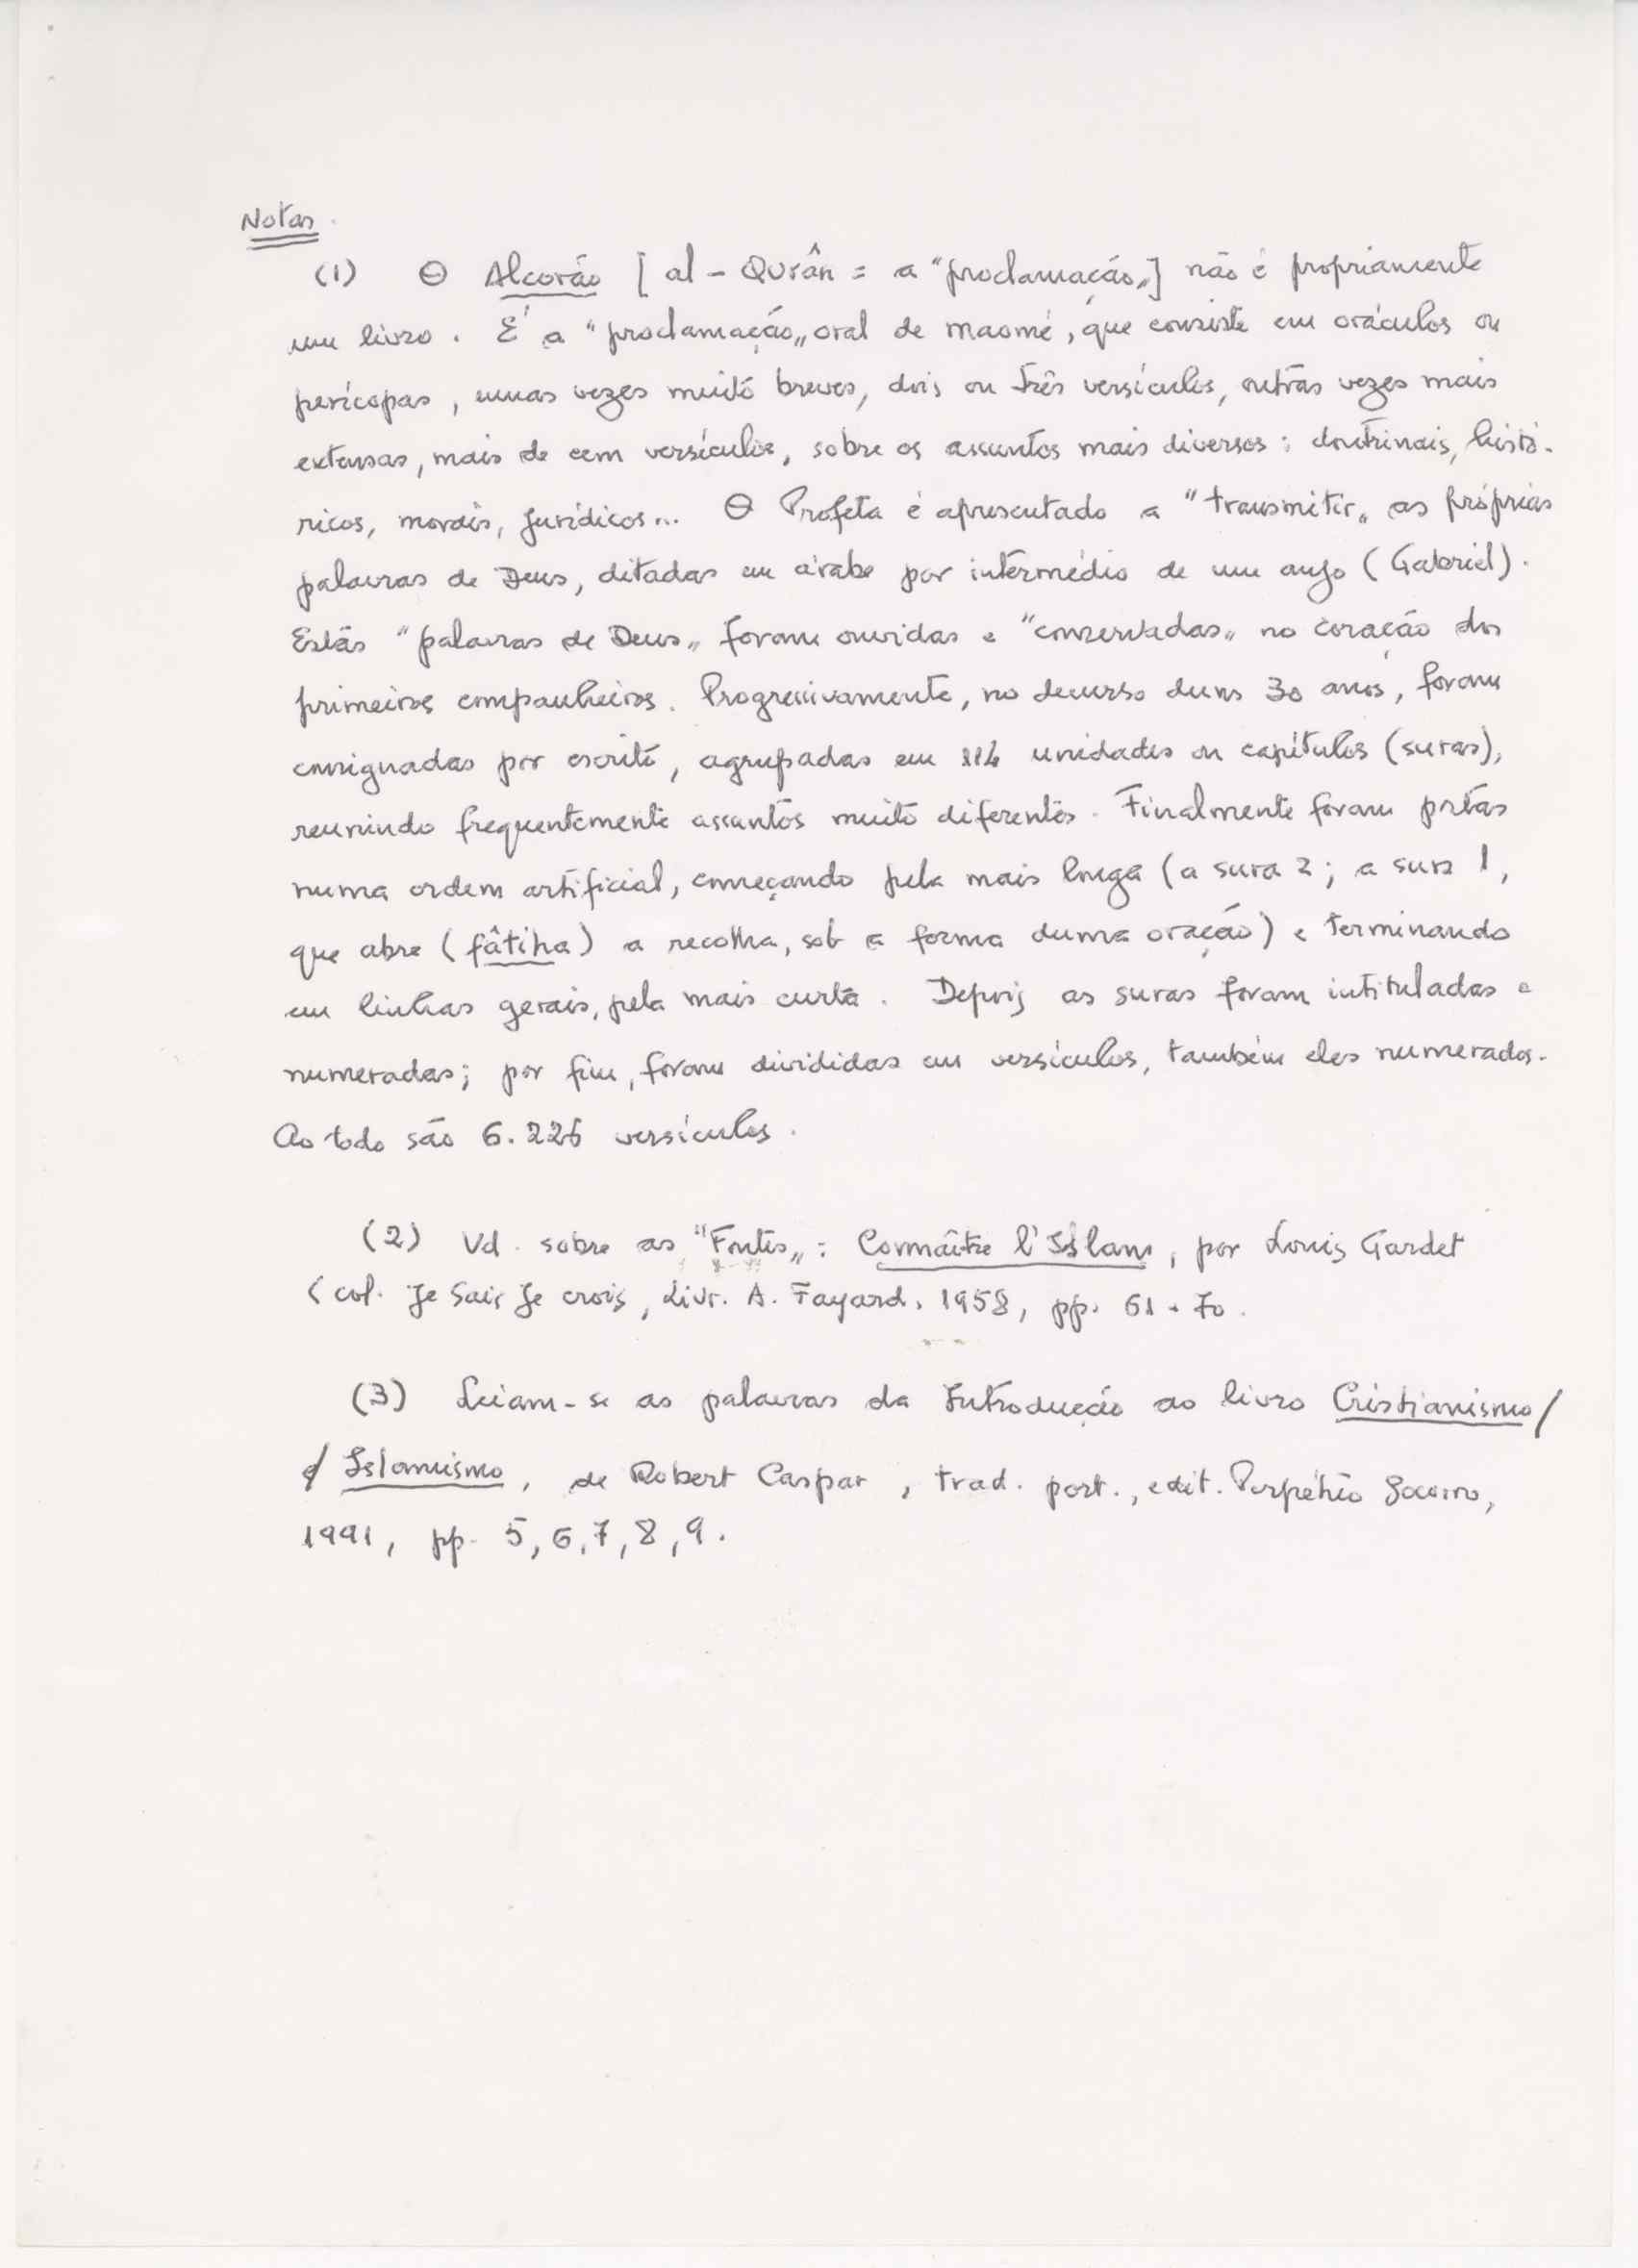 Notas.
(1) O Alcorão [al-Qurân = a "proclamação"] não é propriamente
um livro. É a "proclamação" oral de Maomé, que consiste em oráculos ou
perícopas, umas vezes muito breves, dois ou três versículos, outras vezes mais
extensas, mais de cem versículos, sobre os assuntos mais diversos: doutrinais, histó-
ricos, morais, jurídicos... O Profeta é apresentado a "transmitir" as próprias
palavras de Deus, ditadas em árabe por intermédio de um anjo (Gabriel).
Estas "palavras de Deus" foram ouvidas e "conservadas" no coração dos
primeiros companheiros. Progressivamente, no decurso duns 30 anos, foram
consignadas por escrito, agrupadas em 114 unidades ou capítulos (suras),
reunindo frequentemente assuntos muito diferentes. Finalmente foram postas
numa ordem artificial, começando pela mais longa (a sura 2; a sura 1,
que abre (fâtiha) a recolha, sob a forma duma oração) e terminando
em linhas gerais, pela mais curta. Depois as suras foram intituladas e
numeradas; por fim, foram divididas em versículos, também eles numerados.
Ao todo são 6.226 versículos.
(2) Vd. sobre as "Fontes": Connaître l'Islam, por Louis Gardet
(col. Je Sais Je crois, Livr. A. Fayard, 1958, pp. 61-70.
(3) Leiam-se as palavras da Introdução ao livro Cristianismo/
/Islamismo, de Robert Caspar, trad. port., edit. Perpétuo Socorro,
1991, pp. 5, 6, 7, 8, 9.